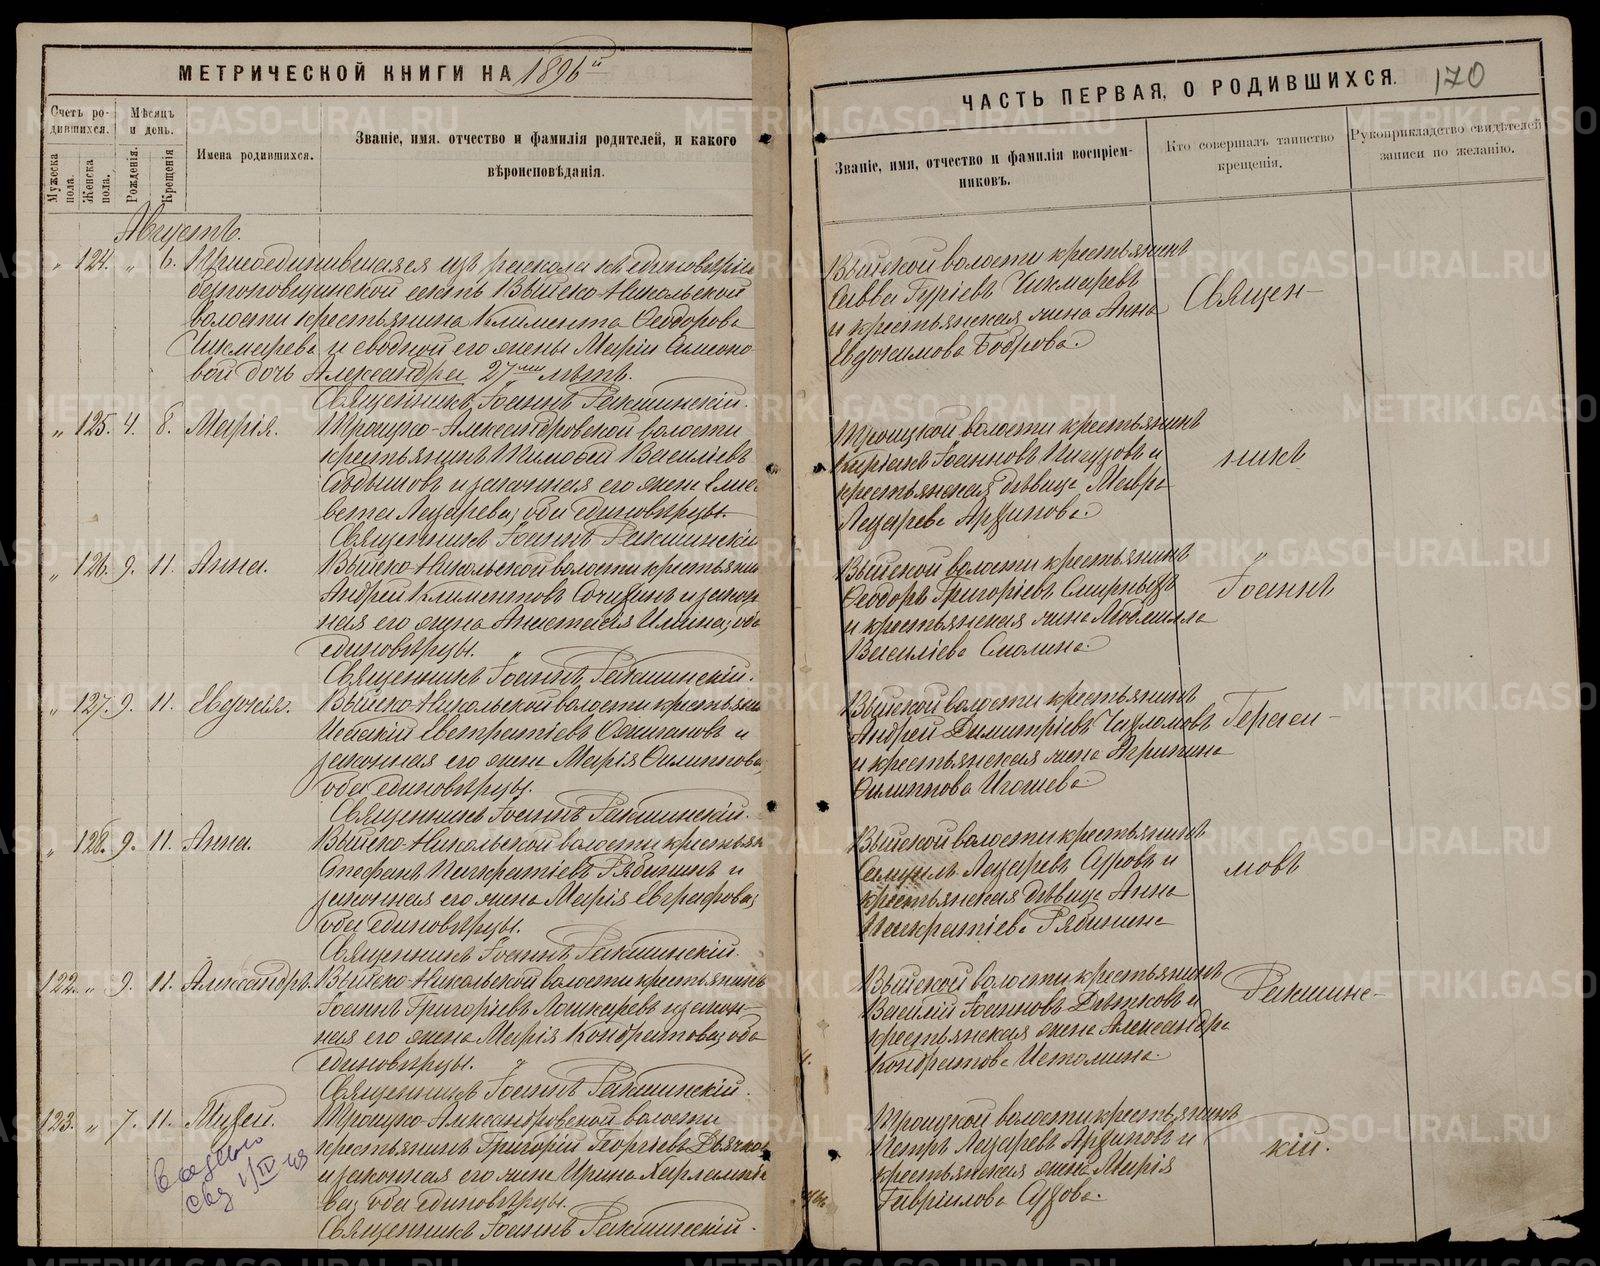 МЕТРИЧЕСКОЙ КНИГИ НА 1896й
Счетъ родившихся.
Мѣсяцъ и день.
Мужеска пола.
Женска пола.
Рожденія.
Крещенія
Имена родившихся.
Званіе, имя, отчество и фамилія родителей, и какого
вѣроисповѣданія.
Августъ.
" 124. " 6. Присоединившаяся изъ раскола къ единовѣрію
безпоповщинской секты Выйско-Никольской
волости крестьянина Климента Ѳеодорова
Чикмарева и сводной его жены Маріи Симоно-
вой дочь Александра 27ми лѣтъ.
Священникъ Іоаннъ Ракшинскій.
" 125. 4. 8. Марія.
Троицко-Александровской волости
крестьянинъ Тимофей Васильевъ
и законная его жена Елиса
вета Лазарева, оба единовѣрцы.
Священникъ Іоаннъ Ракшинскій
" 126. 9. 11. Анна.
Выйско-Никольской волости крестьянин
Андрей Климентовъ и закон
ная его жена Анастасія Ильина, оба
единовѣрцы.
Священникъ Іоаннъ Ракшинскій.
" 127. 9. 11. Евдокія.
Выйско-Никольской волости крестьянин
Исаакій Евстратіевъ Ожигановъ и
законная его жена Марія Филиппова,
оба единовѣрцы.
Священникъ Іоаннъ Ракшинскій.
" 128. 9. 11. Анна.
Выйско-Никольской волости крестьян
Стефанъ Панкратіевъ Рябининъ и
законная его жена Марія Евграфова,
оба единовѣрцы.
Священникъ Іоаннъ Ракшинскій.
122. " 9. 11. Александръ.
Выйско-Никольской волости крестьянинъ
Іоаннъ Григоріевъ Лошкаревъ и закон-
ная его жена Марія Кондратова, оба
единовѣрцы.
Священникъ Іоаннъ Ракшинскій.
123. " 7. 11. Мувей.
Троицко-Александровской волости
крестьянинъ Григорій Георгіевъ Дьячков
и законная его жена Ирина Харлампіе
ва, оба единовѣрцы.
Священникъ Іоаннъ Ракшинскій.
1/IV-43
ЧАСТЬ ПЕРВАЯ, О РОДИВШИХСЯ.
170
Званіе, имя, отчество и фамилія воспріем-
никовъ.
Кто совершалъ таинство
крещенія.
Рукоприкладство свидѣтелей
записи по желанію.
Выйской волости крестьянинъ
Савва Гуріевъ Чикмаревъ
и крестьянская жена Анна
Евдокимова Боброва.
Священ-
Троицкой волости крестьянинъ
Киріакъ Іоанновъ и
крестьянская дѣвица Мавра
Лазарева Арзипова.
никъ
Выйской волости крестьянинъ
Ѳеодоръ Григоріевъ
и крестьянская жена Людмилла
Васильева Смолина.
Іоаннъ
Выйской волости крестьянинъ
Андрей Димитріевъ
и крестьянская жена Агрипина
Филиппова Игошева
Гераси-
Выйской волости крестьянинъ
Самуилъ Лазаревъ и
крестьянская дѣвица Анна
Панкратіева Рябинина
мовъ
Выйской волости крестьянинъ
Василій Іоанновъ Дѣтковъ и
крестьянская жена Александра
Кондратова Истомина.
Ракшинс-
Троицкой волости крестьянинъ
Петръ Лазаревъ Арзиповъ и
крестьянская жена Марія
Гавріилова
кій.
METRIKI.GASO-URAL.RU